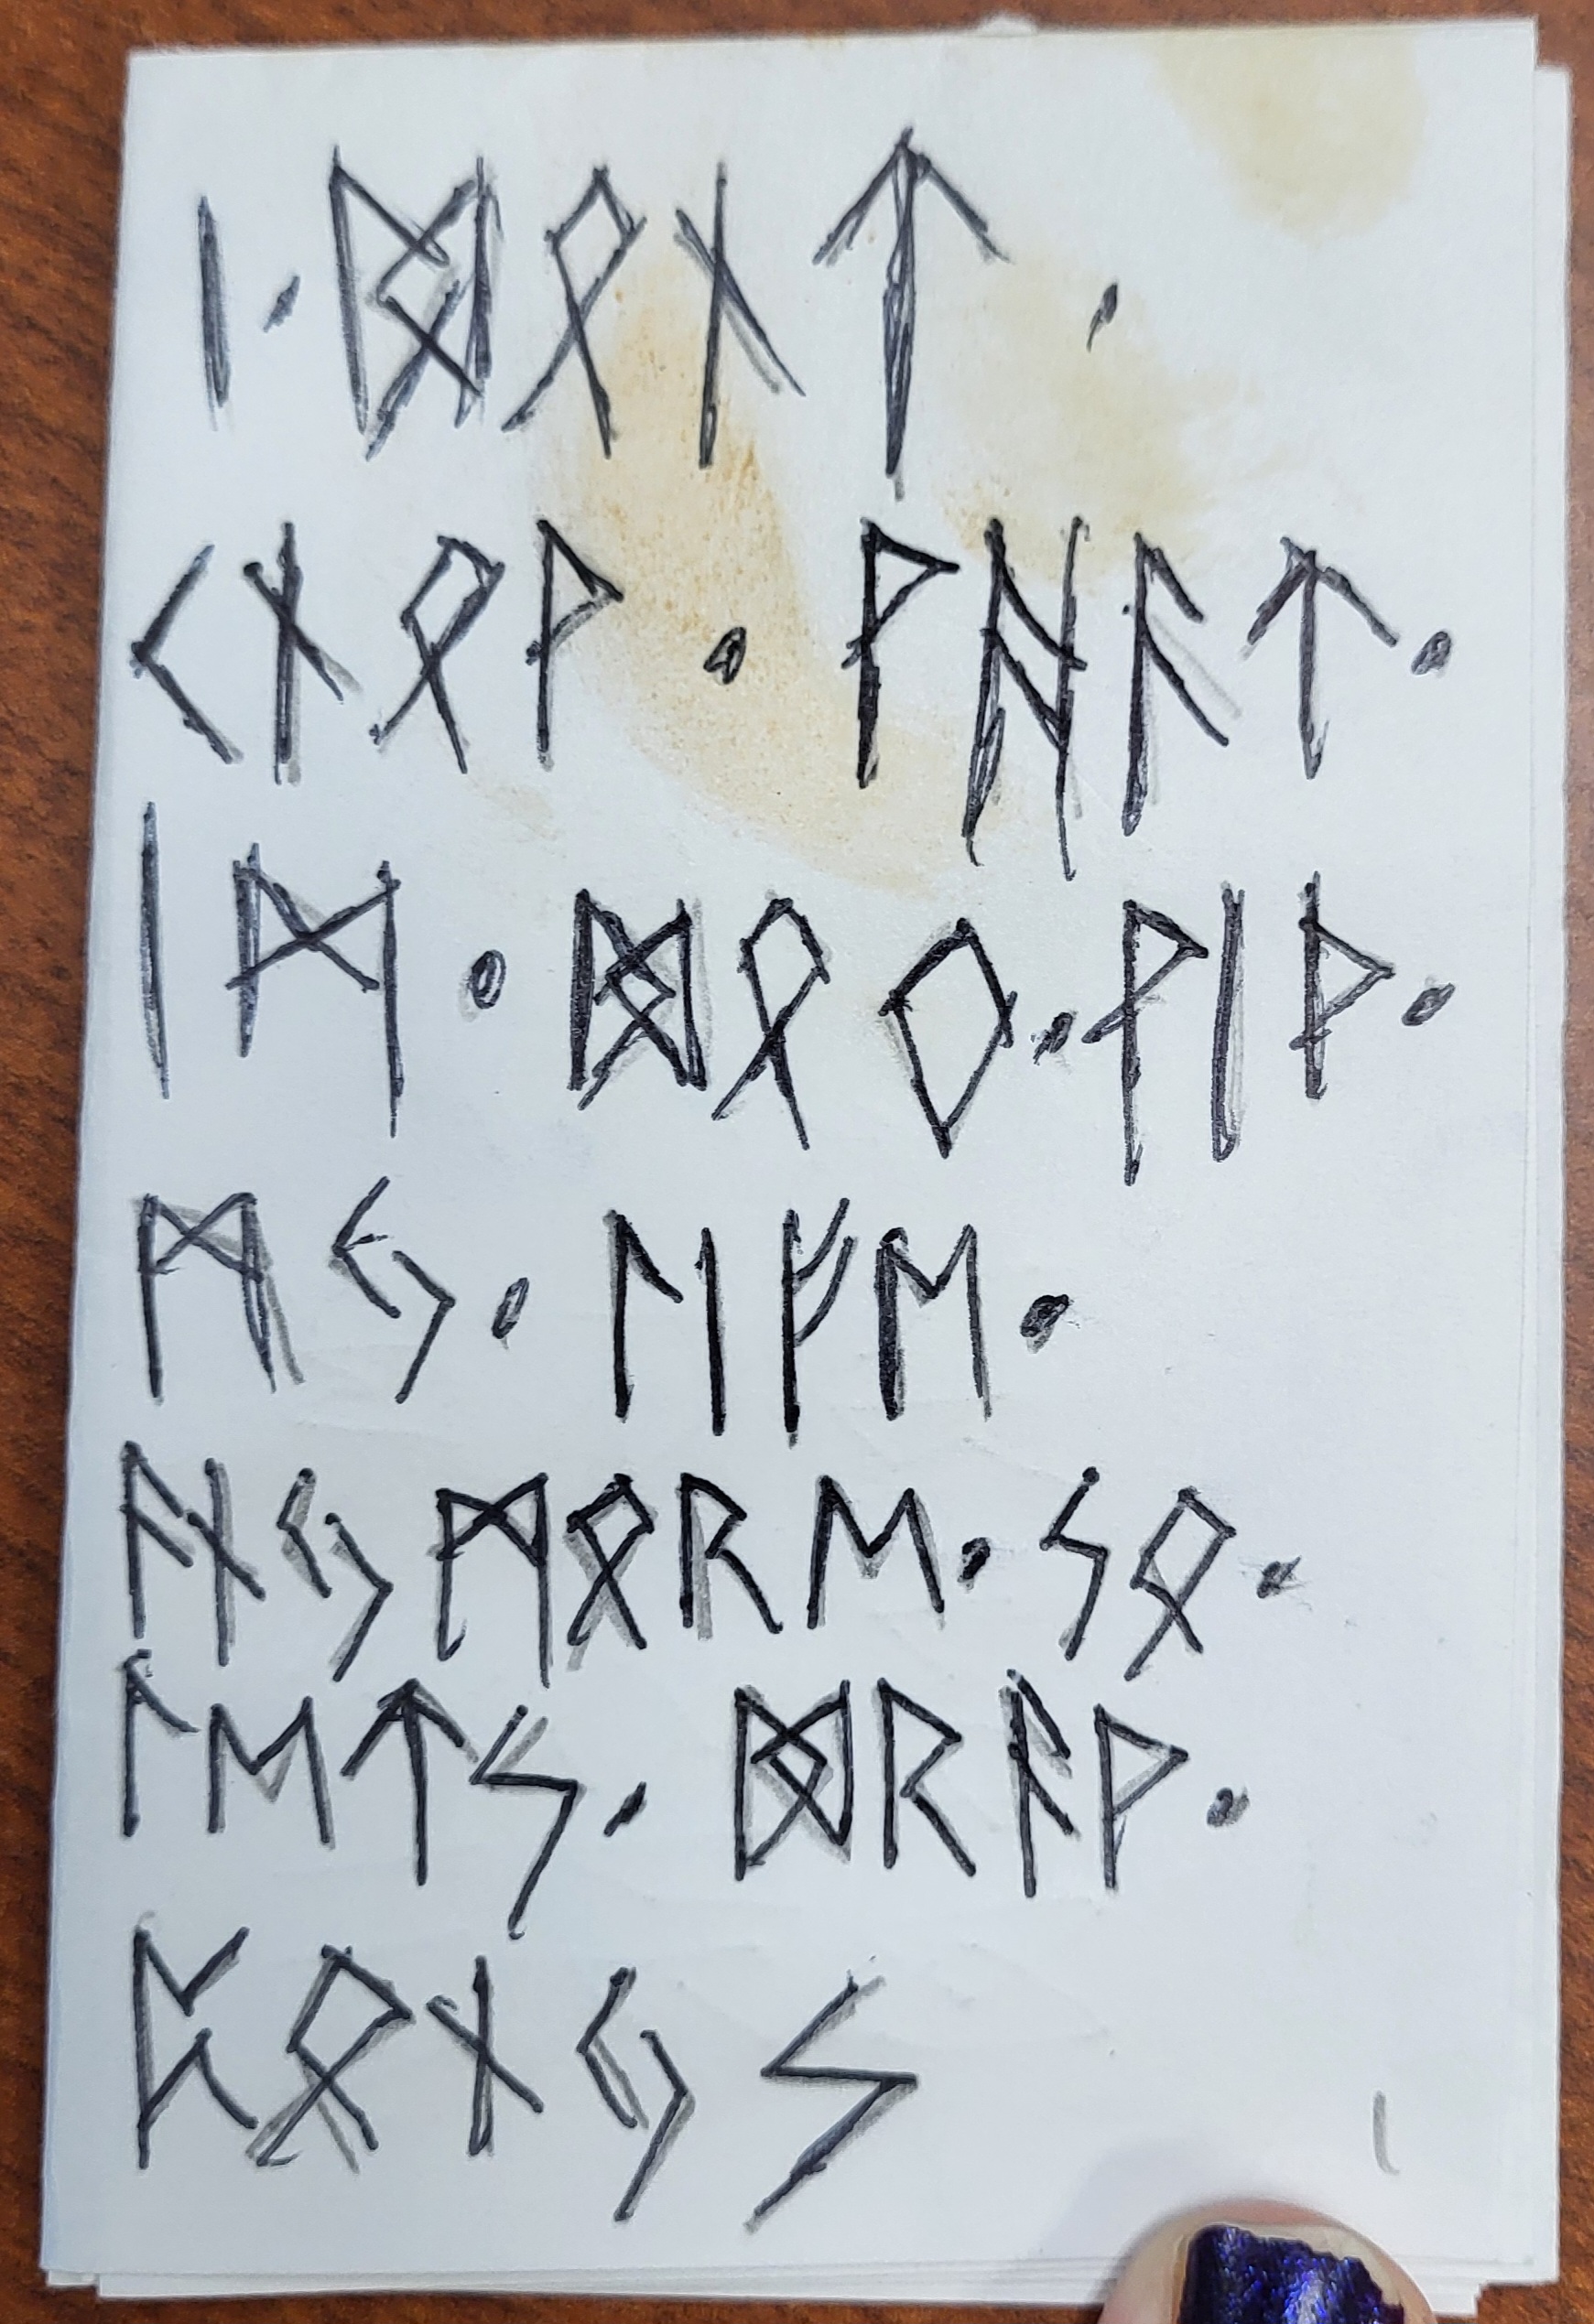 ᛁ·ᛞᛟᚾᛏ·
ᚲᚾᛟᚹ·ᚹᚺᚨᛏ·
ᛁᛗ·ᛞᛟᛜ·ᚹᛁᚦ·
ᛗᛃ·ᛚᛁᚠᛖ·
ᚨᚾᛃᛗᛟᚱᛖ·ᛊᛟ·
ᛚᛖᛏᛊ·ᛞᚱᚨᚹ·
ᛈᛟᚾᛃᛊ